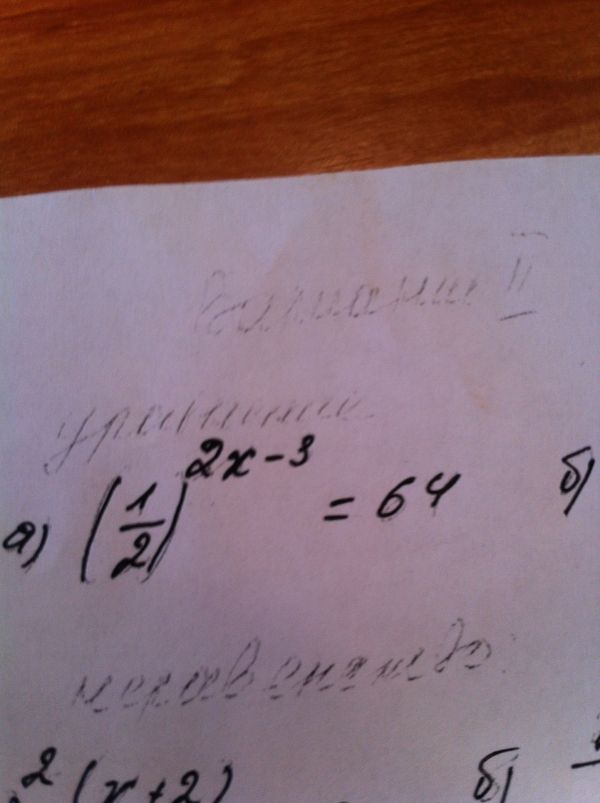 Вариант II
уравнение
а) (1/2)^{2x-3} = 64 б)
неравенство:
2 (x+2) б)